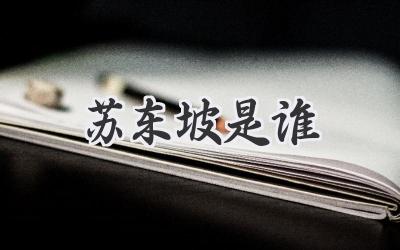 苏东坡是谁